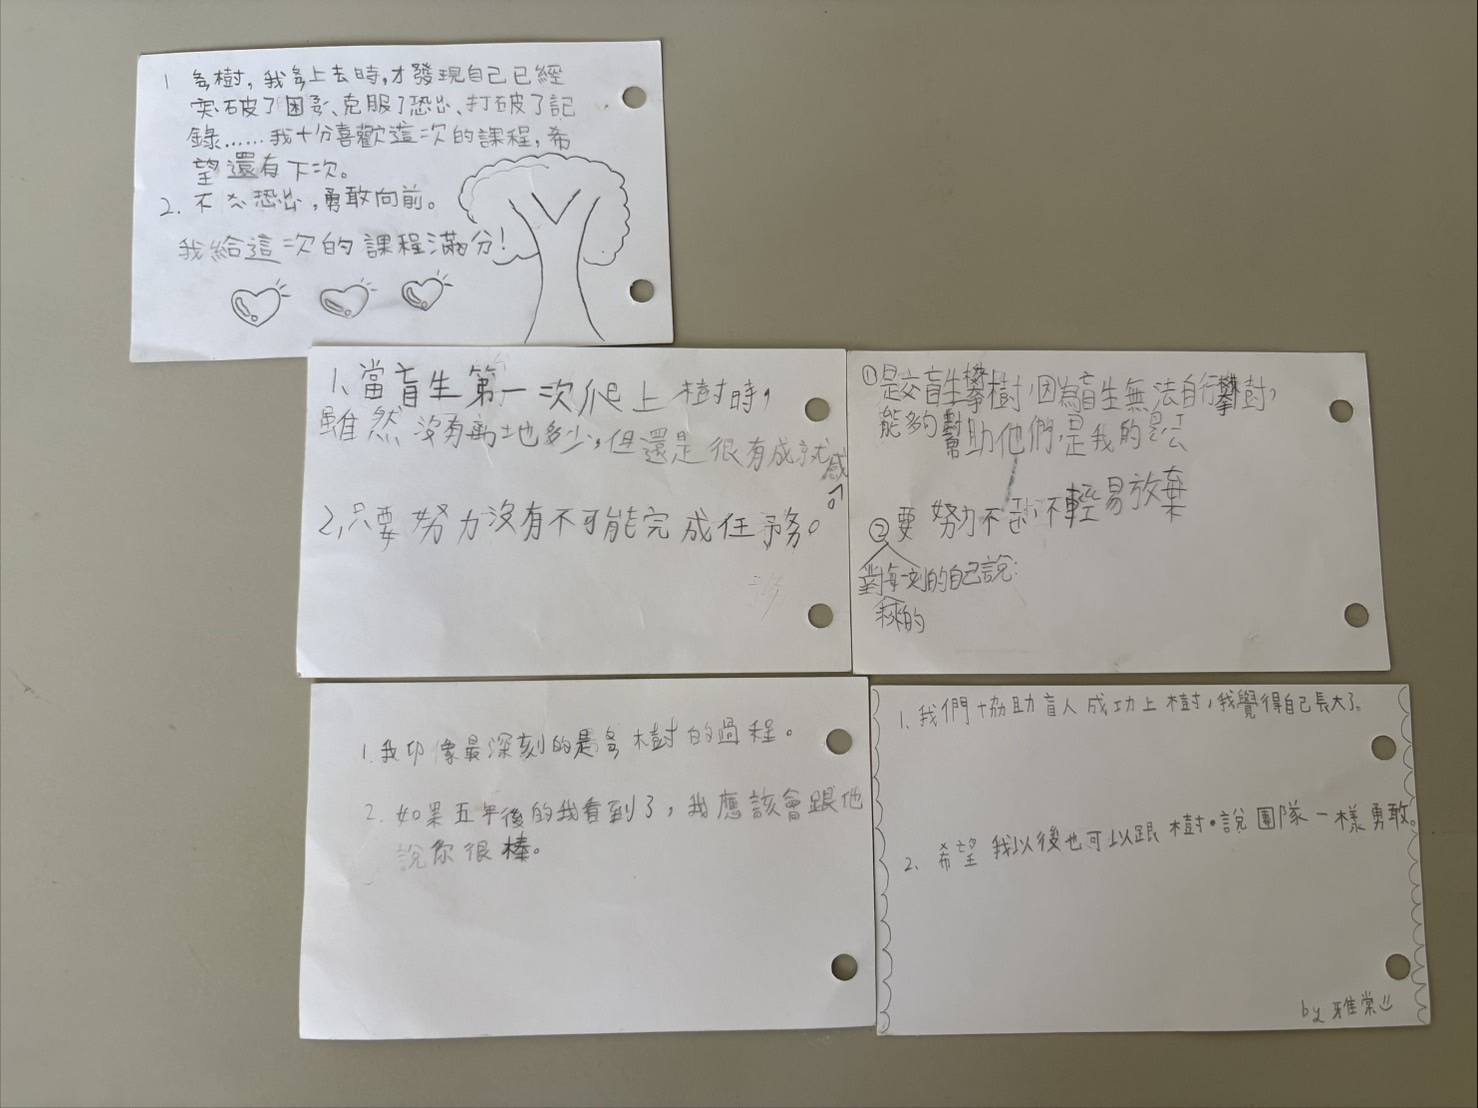 1 爬樹，我爬上去時，才發現自己已經
突破了困難、克服了恐出、打破了記
錄……我十分喜歡這次的課程，希
望還有下次。
2. 不太恐出，勇敢向前。
我給這次的課程滿分！
1、當盲生第一次爬上樹時，
雖然沒有離地多少，但還是很有成就感
2，只要努力沒有不可能完成任務。
①是教盲生攀樹，因為盲生無法自行攀樹，
能夠幫助他們，是我的
②要努力不 不輕易放棄
對每一刻的自己說：
未來的
1. 我印像最深刻的是爬樹的過程。
2. 如果五年後的我看到了，我應該會跟他
說你很棒。
1. 我們協助盲人成功上樹，我覺得自己長大了。
2. 希望我以後也可以跟樹・說團隊一樣勇敢。
by 雅棠